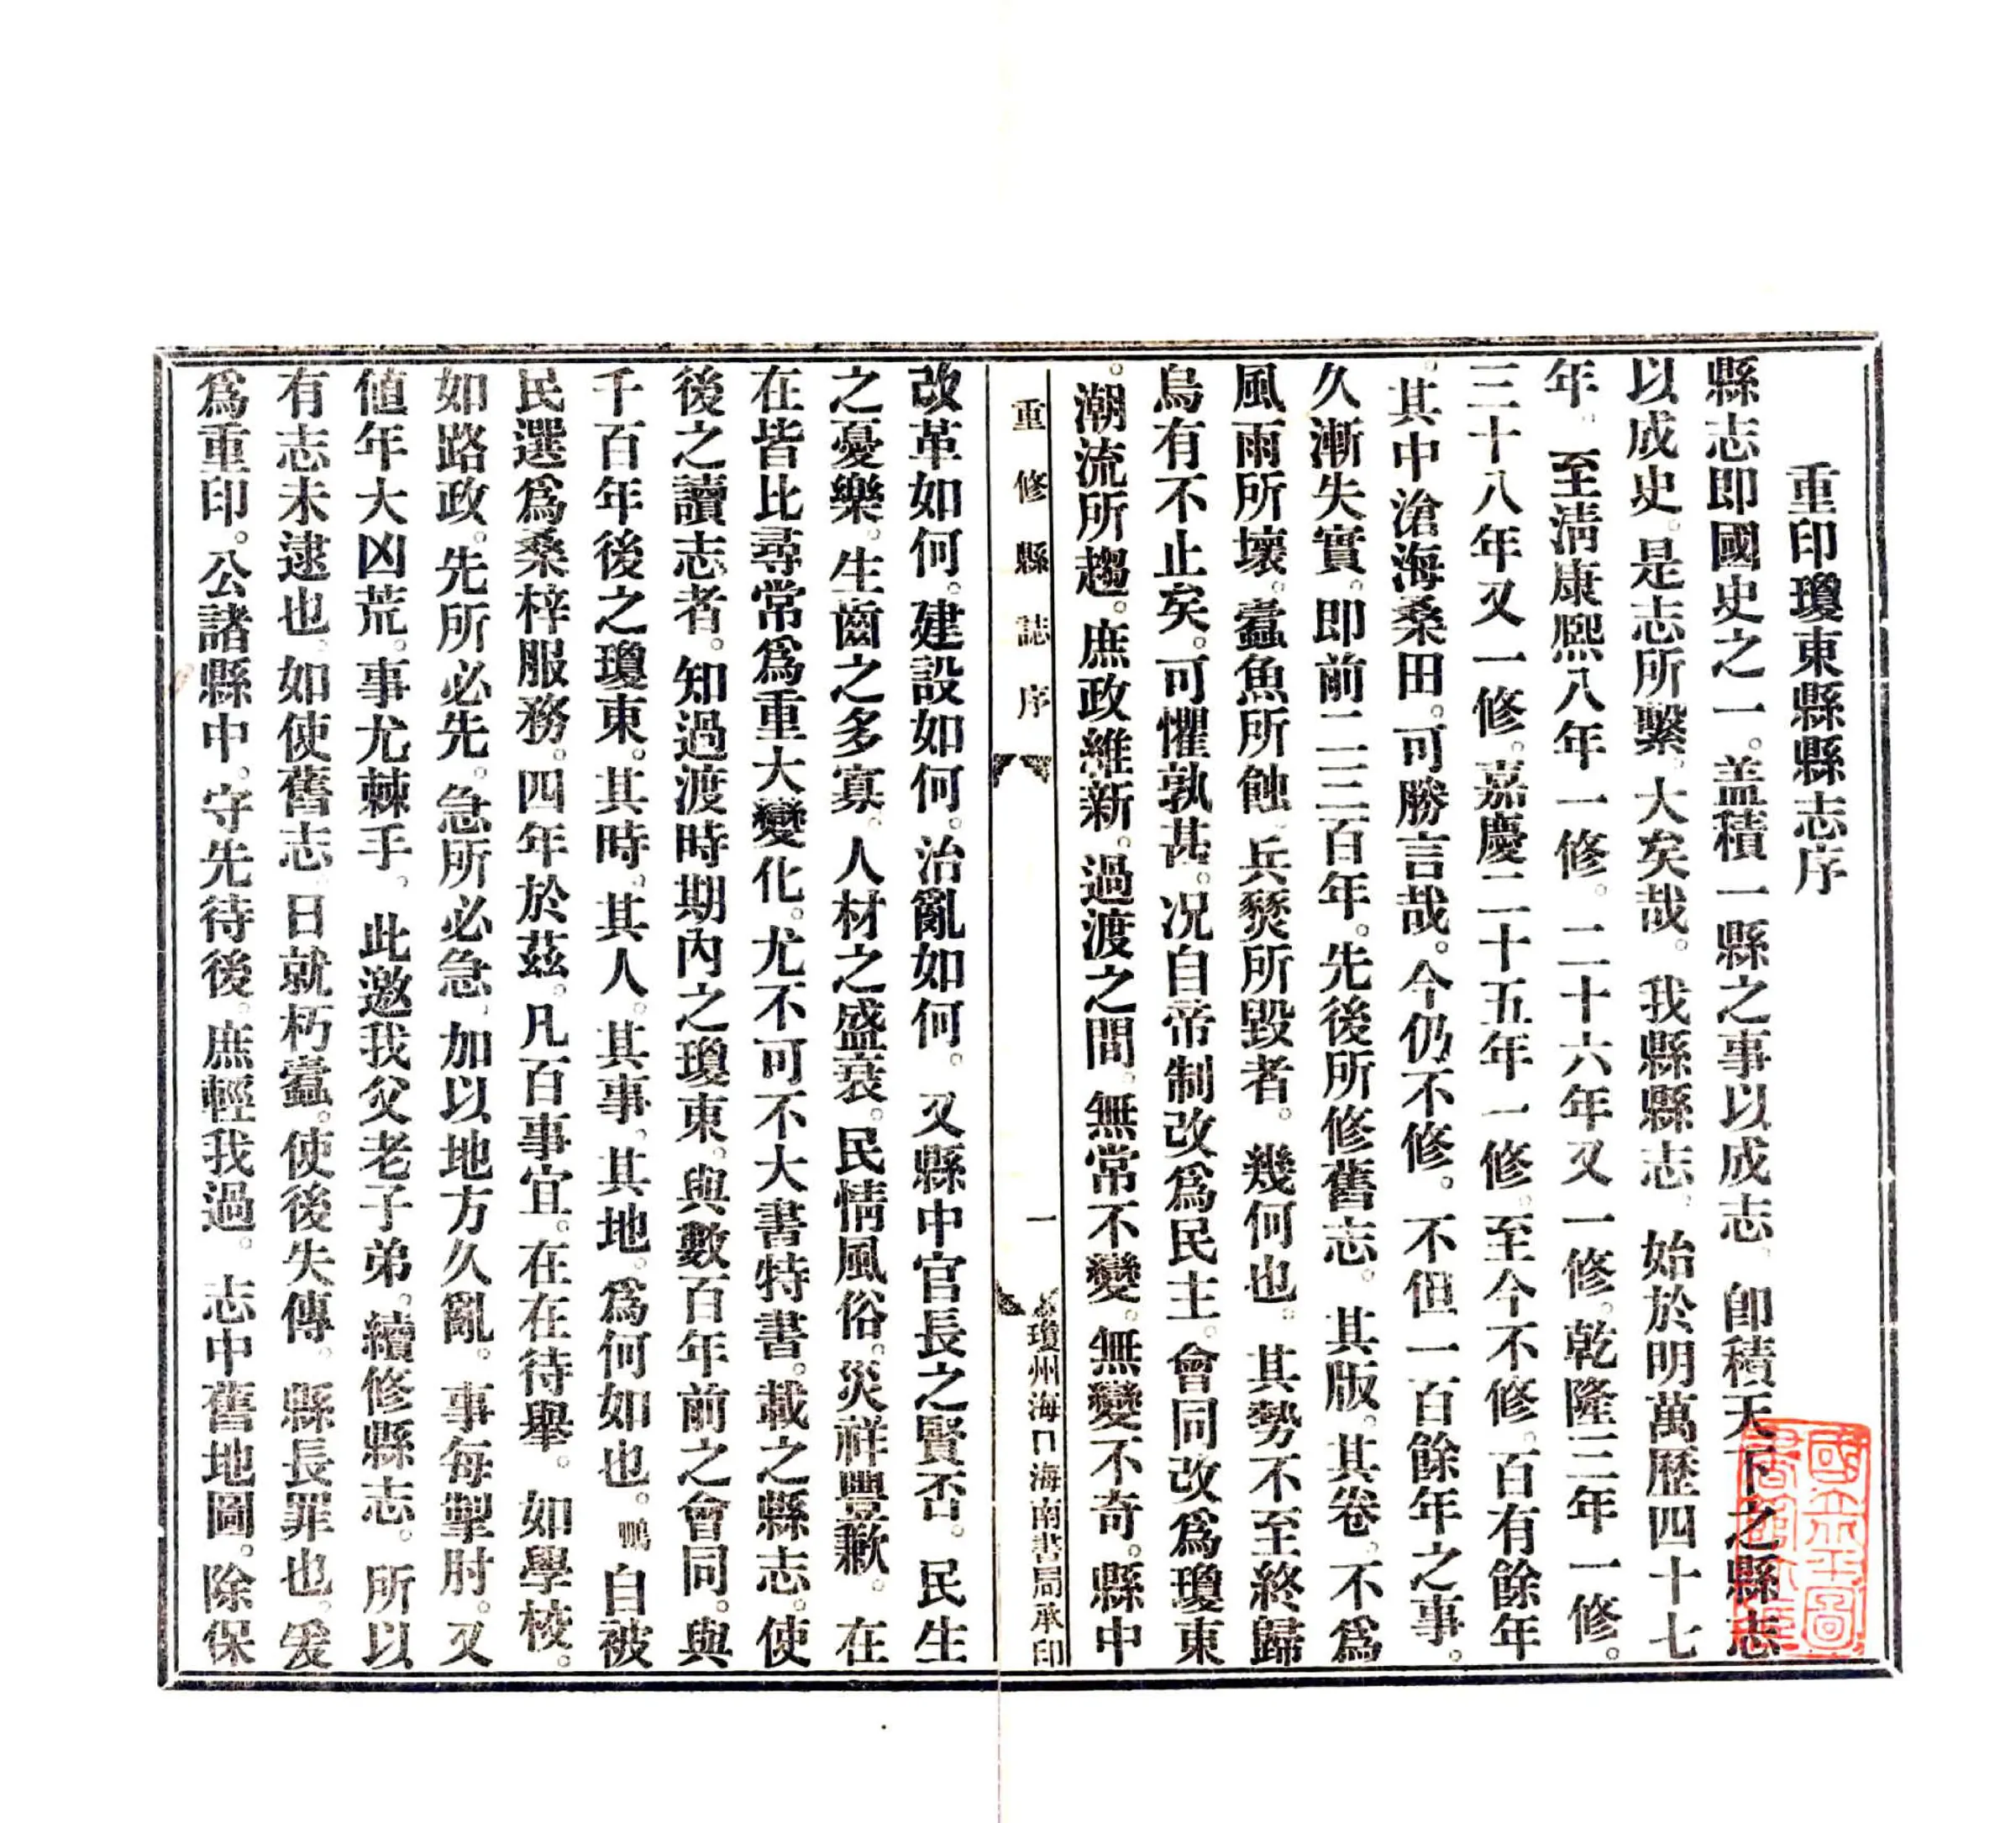 重印瓊東縣縣志序
縣志即國史之一。盖積一縣之事以成志。即積天下之縣志
以成史。是志所繫。大矣哉。我縣縣志。始於明萬歷四十七
年。至淸康熙八年一修。二十六年又一修。乾隆三年一修。
三十八年又一修。嘉慶二十五年一修。至今不修。百有餘年
。其中滄海桑田。可勝言哉。今仍不修。不但一百餘年之事。
久漸失實。即前二三百年。先後所修舊志。其版。其卷。不爲
風雨所壞。蠹魚所蝕。兵燹所毀者。幾何也。其勢不至終歸
烏有不止矣。可懼孰甚。况自帝制改爲民主。會同改爲瓊東
。潮流所趨。庶政維新。過渡之間。無常不變。無變不奇。縣中
重修縣誌序
一
瓊州海口海南書局承印
改革如何。建設如何。治亂如何。又縣中官長之賢否。民生
之憂樂。生齒之多寡。人材之盛衰。民情風俗。災祥豐歉。在
在皆比尋常爲重大變化。尤不可不大書特書。載之縣志。使
後之讀志者。知過渡時期內之瓊東。與數百年前之會同。與
千百年後之瓊東。其時。其人。其事。其地。爲何如也。鴨自被
民選爲桑梓服務。四年於茲。凡百事宜。在在待舉。如學校。
如路政。先所必先。急所必急。加以地方久亂。事每掣肘。又
値年大凶荒。事尤棘手。此邀我父老子弟。續修縣志。所以
有志未逮也。如使舊志。日就朽蠹。使後失傳。縣長罪也。爰
爲重印。公諸縣中。守先待後。庶輕我過。志中舊地圖。除保
國立北平圖
書館收藏